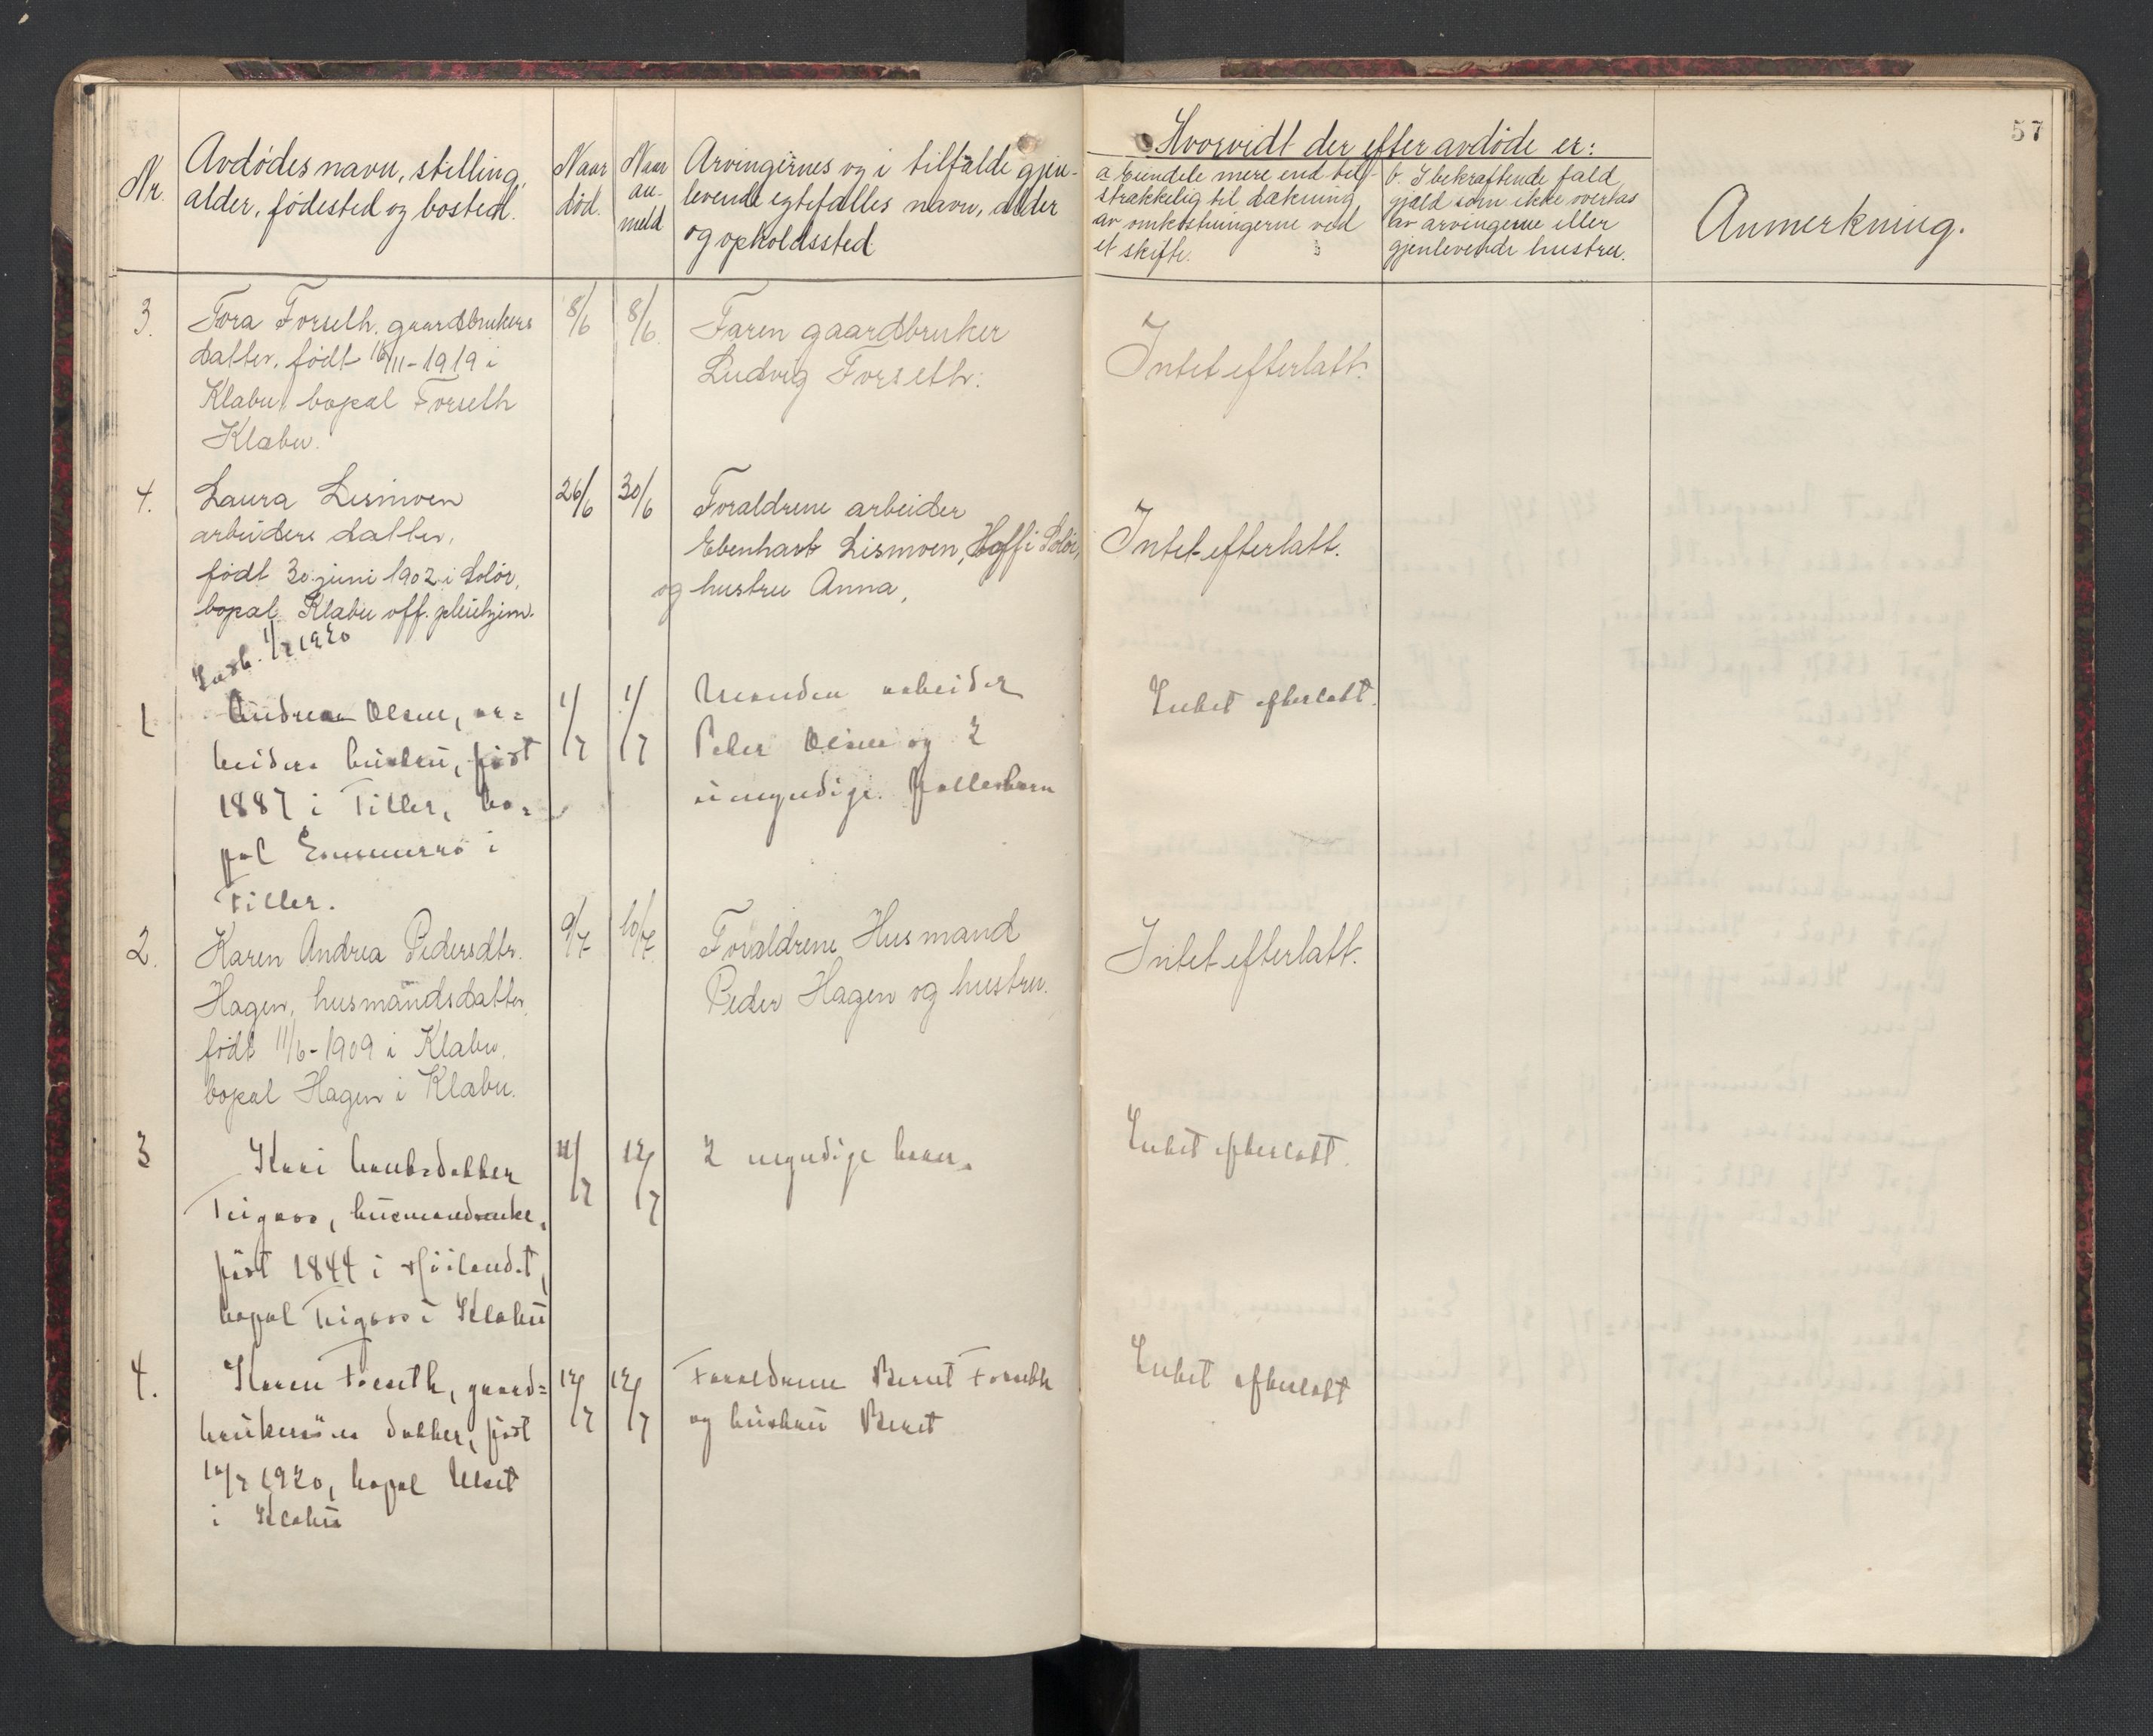 57
Nr.
Avdødes navn, stilling,
alder, fødested og bosted.
Naar
død.
Naar
an-
meld
Arvingernes og i tilfælde gjen-
levende egtefælles navn, alder
og opholdssted
Hvorvidt der efter avdøde er:
a Eiendele mere end til-
strækkelig til dækning
av omkostningerne ved
et skifte.
b. I bekræftende fald
gjæld som ikke overtas
av arvingerne eller
gjenlevende hustru.
Anmerkning.
3.
Tora Forseth, gaardbrukers
datter, født 16/11-1919 i
Klæbu, bopæl Forseth
Klæbu.
8/6
8/6.
Faren gaardbruker
Ludvig Forseth.
Intet efterlatt.
4.
Laura Lismoen
arbeiders datter,
født 30 juni 1902 i Solør,
bopæl Klæbu off. pleiehjem.
26/6
30/6
Forældrene arbeider
Ebenhart Lismoen, Hof i Solør,
og hustru Anna,
Intet efterlatt.
Indb. 1/7 1920
1
Andrea Olsen, ar-
beiders hustru, født
1887 i Tiller, bo-
pæl
i
Tiller.
1/7
1/7
Manden arbeider
Peter Olsen og 2
umyndige fællesbarn
Intet efterlatt.
2.
Karen Andrea Pedersdtr.
Hagen, husmandsdatter,
født 11/6-1909 i Klæbu,
bopæl Hagen i Klæbu.
9/7
10/7.
Forældrene Husmand
Peder Hagen og hustru.
Intet efterlatt.
3
Kari
Teigaas, husmandsenke,
født 1844 i Høilandet,
bopæl Teigaas i Klæbu
11/7
12/7
2 myndige barn.
Intet efterlatt.
4.
Karen Forseth, gaard-
brukersøns datter, født
12/7 1920, bopæl Ulset
i Klæbu
12/7
12/7
Forældrene Bernt Forseth
og hustru Beret
Intet efterlatt